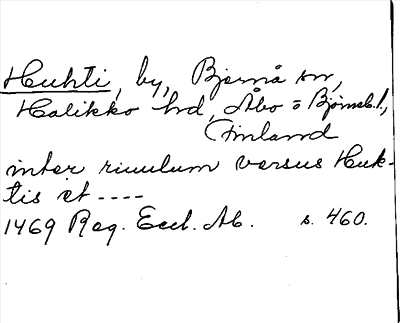 Huhti, by, Bjernå sn,
Halikko hd, Åbo o Bjørneb.l.,
Finland
inter riuulum versus Huk-
tis et ----
1469 Reg. Eccl. Ab. s. 460.